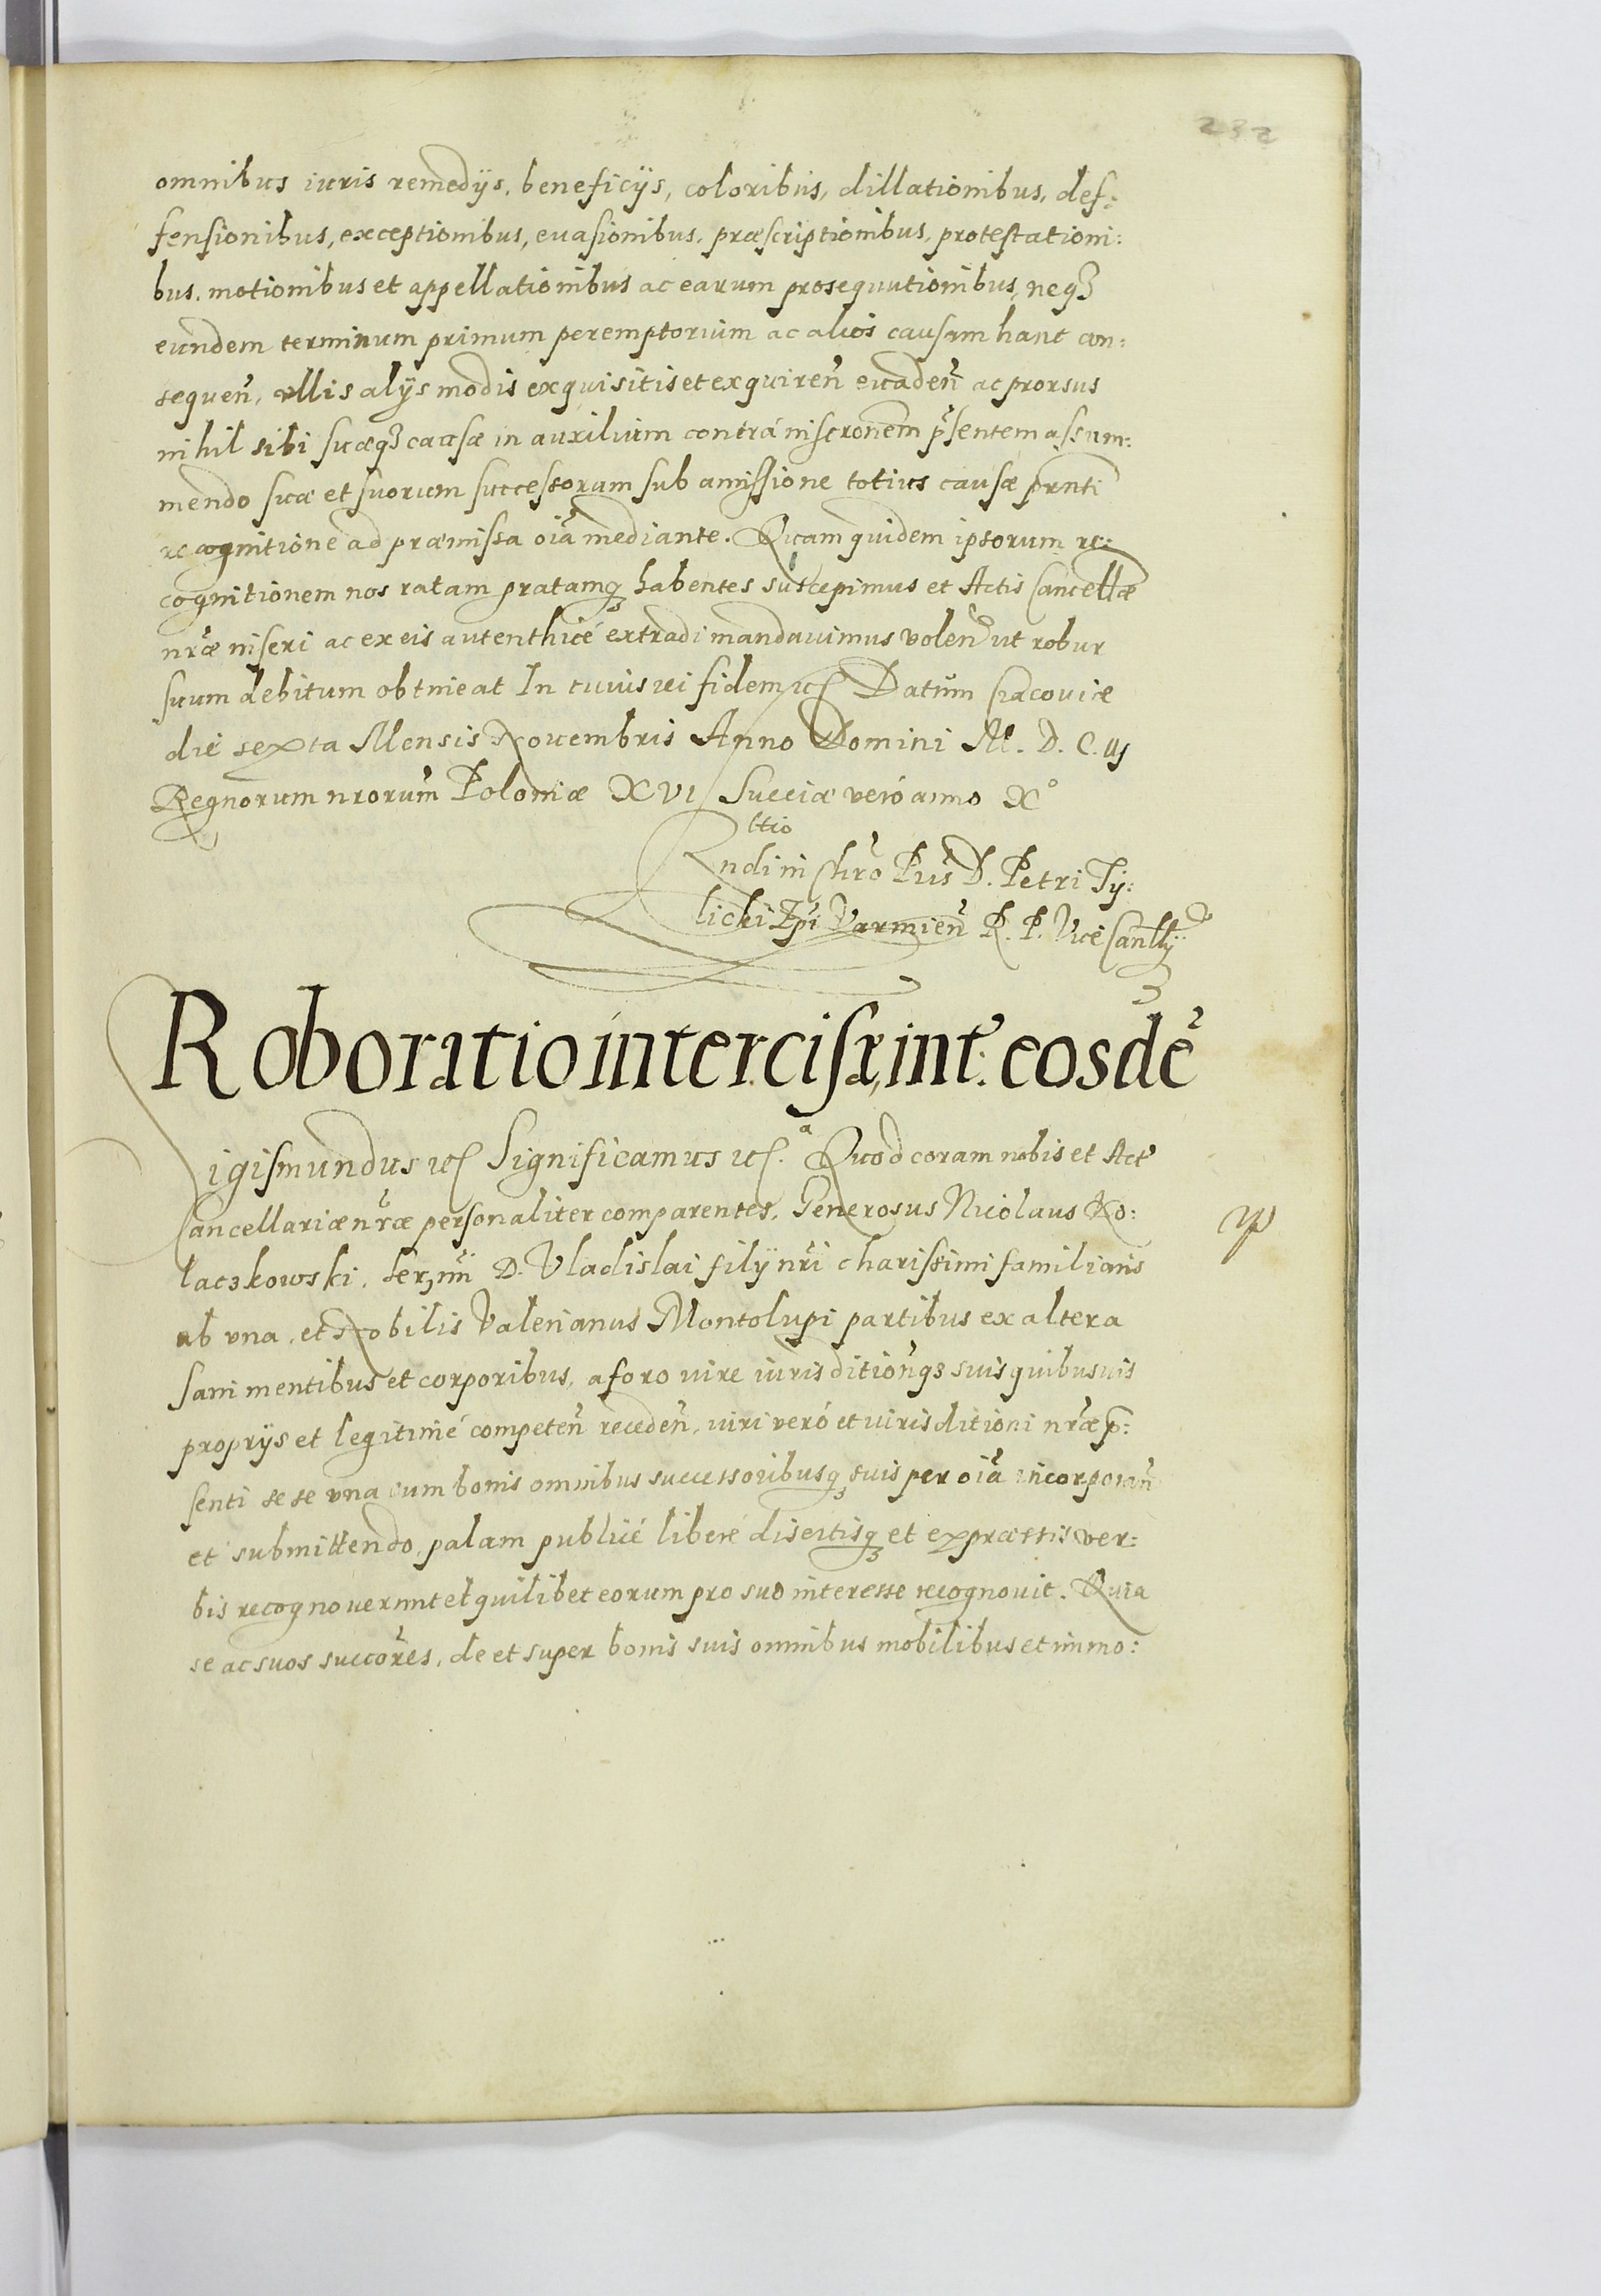 232
omnibus iuris remedijs, beneficijs, coloribus, dillationibus, def:
fensionibus, exceptionibus, euasionibus, præscriptionibus, protestationi:
bus, motionibus et appellationibus ac earum prosequutionibus, neqꝫ
eundem terminum primum peremptorium ac alios causam hanc con:
sequen̄, vllis alijs modis exquisitis et exquiren̄ euaden̄ ac prorsus
nihil sibi suæqꝫ causæ in auxilium contrá inscronem p̄sentem assum:
mendo suæ et suorum successorum sub amissione totius causæ prnti
recognitione ad præmissa oīa mediante. Quam quidem ipsorum re:
cognitionem nos ratam gratamqꝫ habentes suscepimus et Actis Cancellæ
nr̄æ inseri ac ex eis autenthicé extradi mandauimus volen̄ ut robur
suum debitum obtineat In cuius rei fidem etc Datum Cracouiæ
die sexta Mensis Nouembris Anno Domini M. D. C. iij
Regnorum nrorum Poloniæ XVI Sueciæ veró anno X°
ttio
Rndi in Chro Pris D. Petri Ty:
licki Epi Varmien̄ R. P. Vice Canllij
Roboratio intercisæ, int: eosdē
Sigismundus etc Significamus etc. Quod coram nobis et Act
Cancellariæ nr̄æ personaliter comparentes, Generosus Nicolaus Ko:
laczkowski, Serⁿⁱ D. Vladislai filij nr̄i charissimi familiaris
ab vna, et Nobilis Valerianus Montolupi partibus ex altera
sani mentibus et corporibus, a foro iure iurisditionqꝫ suis quibusuis
proprijs et legitimé competen̄ receden̄, iuri veró et iurisditioni nr̄æ p̄:
senti se se vna cum bonis omnibus successoribusqꝫ suis per oīa incorporan̄
et submittendo, palam publicé liberé disertisqꝫ et expræssis ver:
bis recognouerunt et quilibet eorum pro suo interesse recognouit. Quia
se ac suos succores, de et super bonis suis omnibus mobilibus et immo: